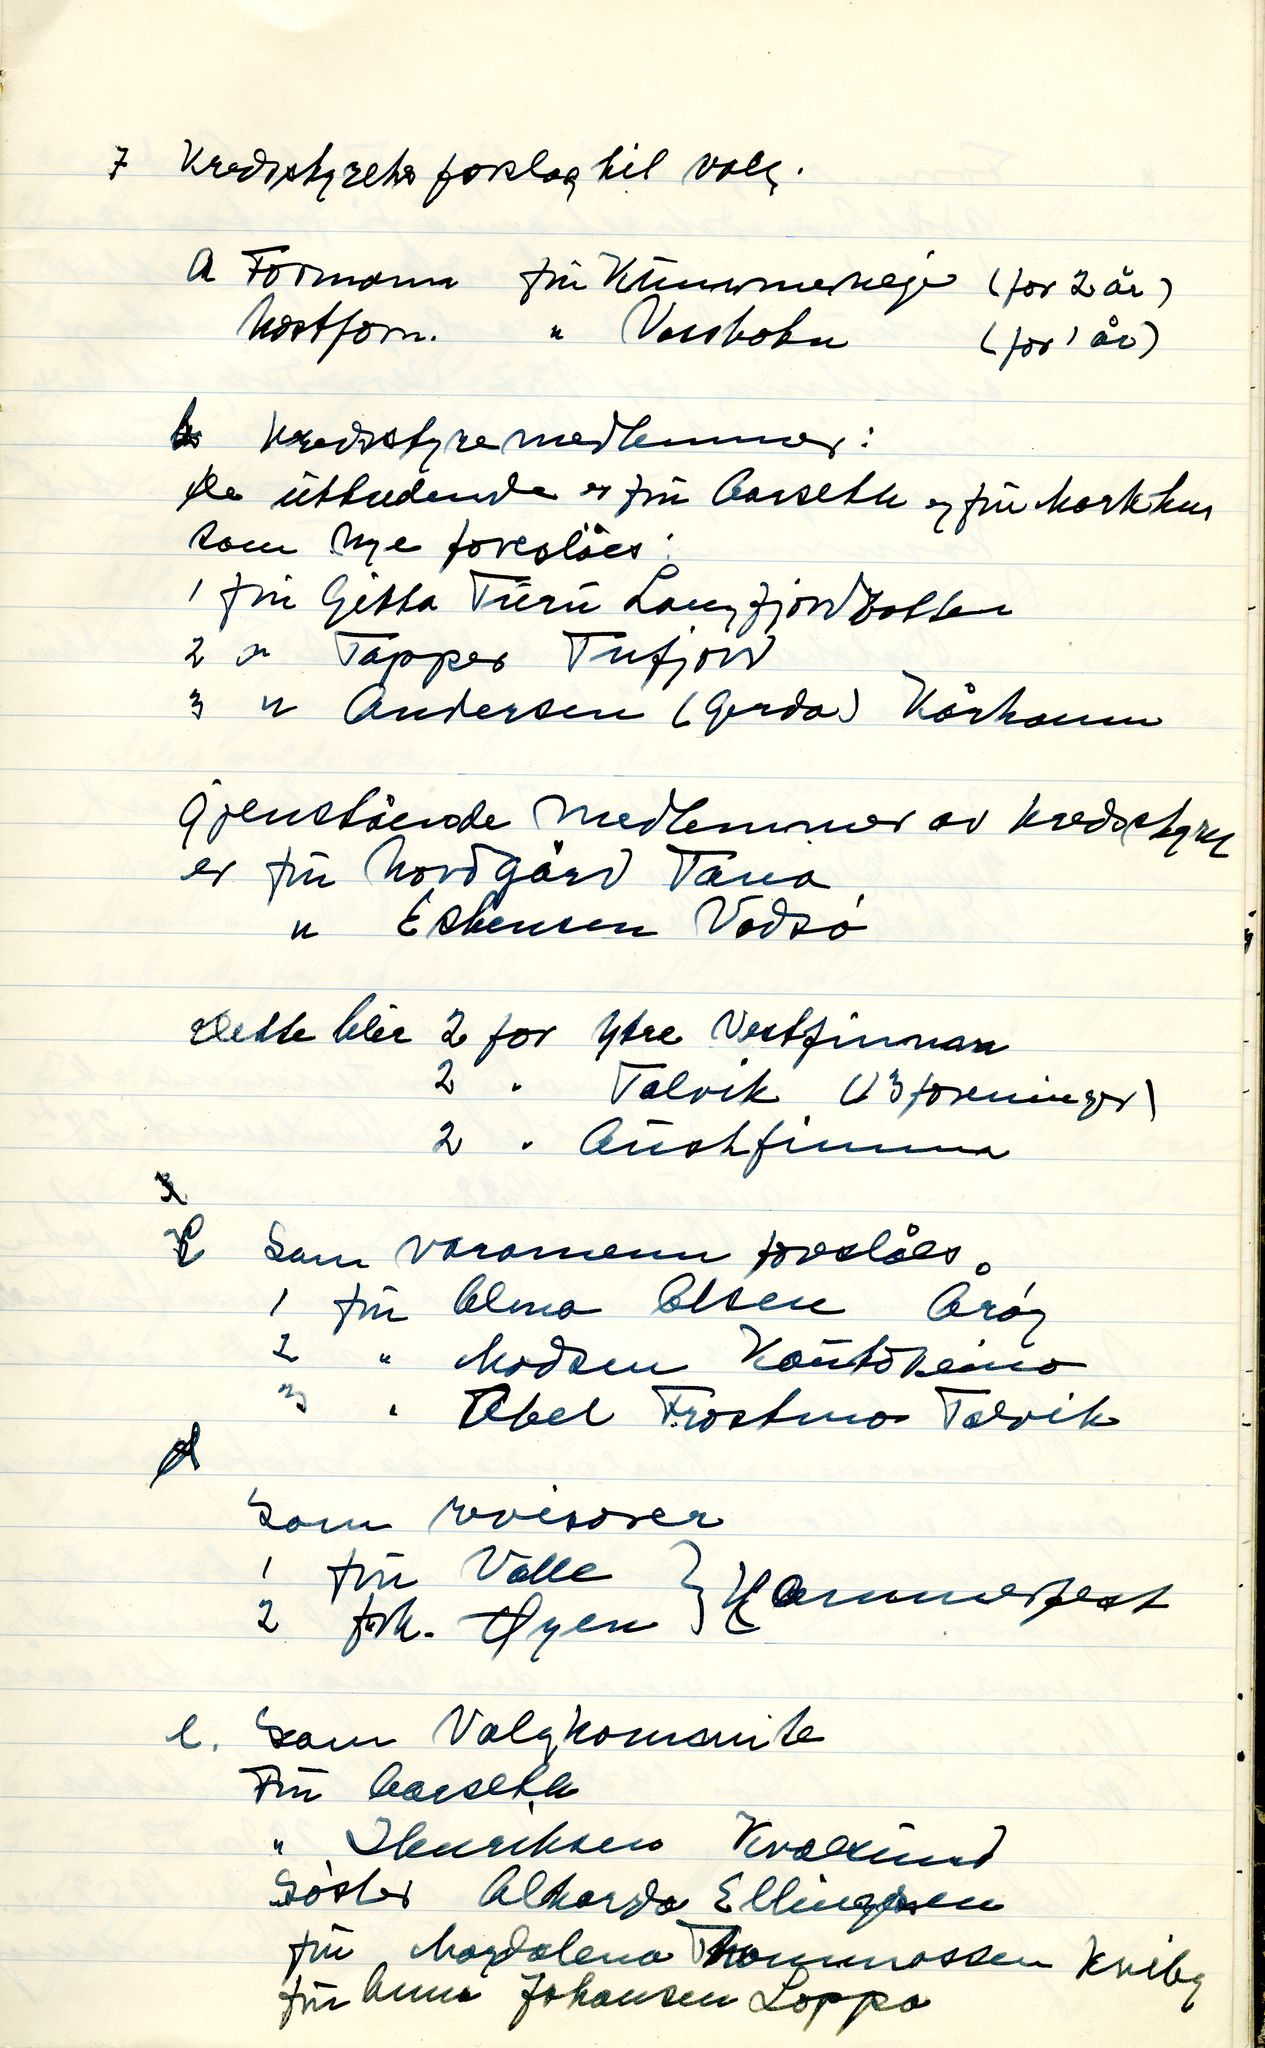 7 Kredsstyrets forslag til valg.
A Formann frü (for 2 år)
Nestform. " (for 1 år)
b Kredsstyremedlemmer:
De üttredende er frü Aarseth og frü
som nye foreslåes:
1 frü Gitta Türü Langfjordbotten
2 " Tapper Tufjord
3 " Andersen (Gerda) Kårhamn
Gjenstående medlemmer av kredsstyret
er frü Nordgård Tana
" Esbensen Vadsö
Dette blir 2 for Ytre Vestfinnm
2 " Talvik (13 foreninger)
2 " Aüstfinnm
C Som varamenn foreslåes
1 frü Alma Olsen Aröy
2 " Madsen Kaütokeino
3 " Abel Frostmo Talvik
d
Som revisorer
1 frü Valle } Hammerfest
2 frk. Øyen
e. Som Valgkommite
Frü Aarseth
" Henriksen Kvalsünd
Söster Alharda Ellingsen
frü Magdalena Thommassen Kviby
frü Anna Johansen Loppa